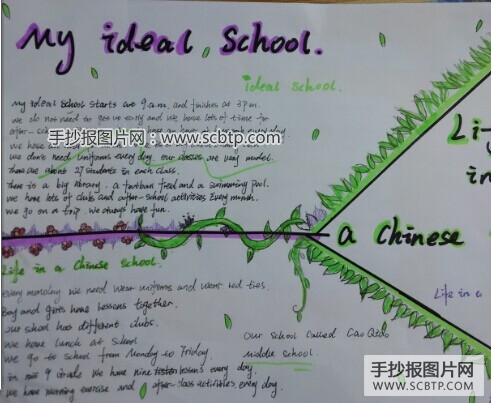 My ideal School.
ideal school.
My ideal school starts at 9 a.m. and finishes at 3 p.m.
We do not need to get up early and we have lots of time for
手抄报图片网：www.scbtp.com
we don't need uniforms every day. our classes are very
there are about 27 students in each class.
There is a big library. a football field and a swimming pool.
We have lots of clubs and after-school activities every month.
we go on a trip. We always have fun.
Li
a Chinese
Life in a Chinese school.
Every monday we need wear uniforms and wear red ties.
Boy and girls have lessons together.
our school has different clubs.
We have lunch at school
We go to school from Monday to Friday.
We have nine lessons every day.
We have morning exercise and after-class activities every day.
Our School Called Cao Qiao
middle school.
Life in a
手抄报图片网
SCBTP.COM